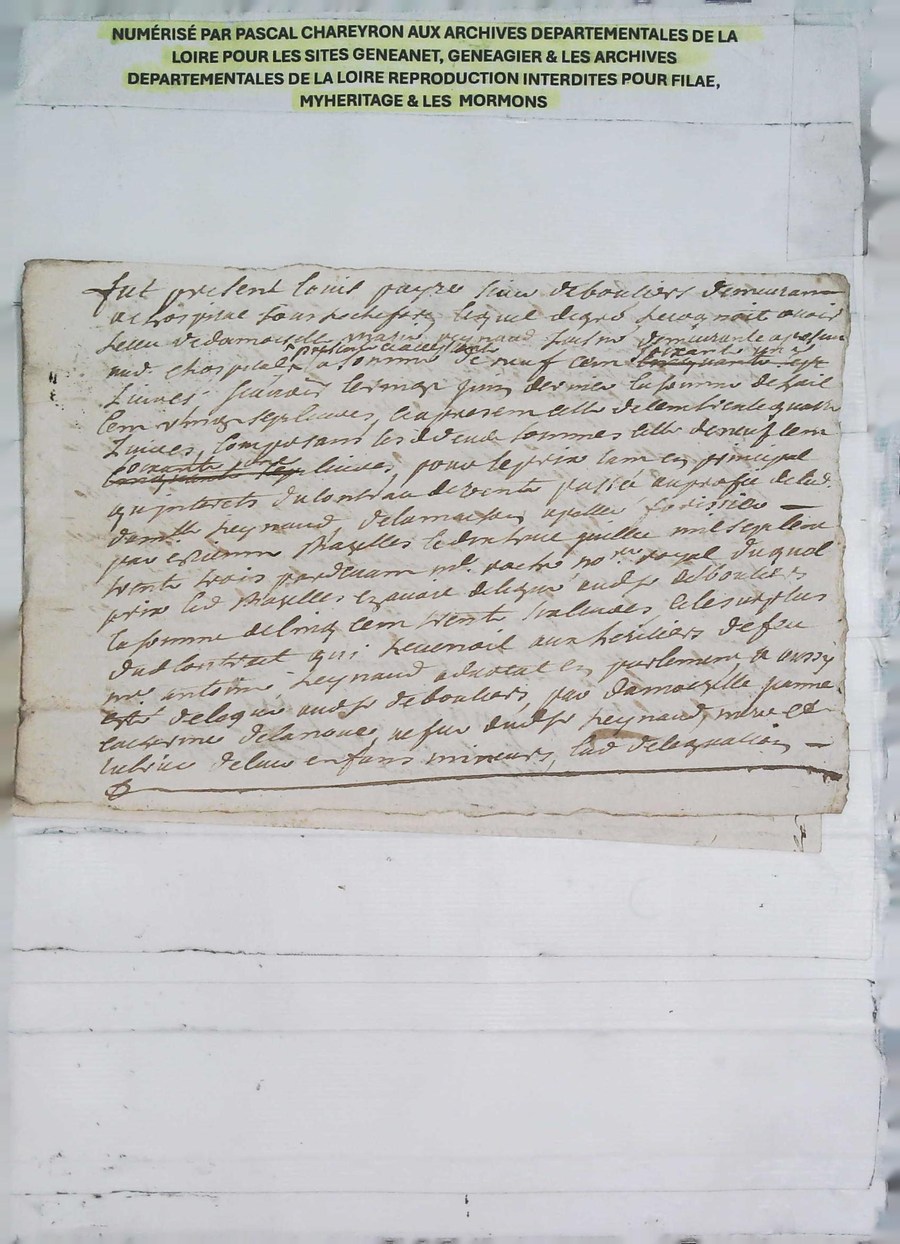 NUMÉRISÉ PAR PASCAL CHAREYRON AUX ARCHIVES DEPARTEMENTALES DE LA
LOIRE POUR LES SITES GENEANET, GENEAGIER & LES ARCHIVES
DEPARTEMENTALES DE LA LOIRE REPRODUCTION INTERDITES POUR FILAE,
MYHERITAGE & LES MORMONS
fut present louis payre sieur debouliers demeurant
a lhospital sous rochefort lequel de gré reconnoit avoir
receu de damoiselle marie reynaud demeurante
aud lhospital presente la somme de neuf cent soixante un
Livres scavoir la somme de huit
cent vingt sept livres, et a present celle de cent trente quatre
Livres, composant lesd deux sommes celle de neuf cent
soixante une livres, pour le prix tant en principal
qu interets du contrat de vente passé au profit de lad
damlle reynaud, de la maison apellée
par mazelles le dix huit juillet mil sept cent
trente trois pardevant me nore royal duquel
prix led mazelles avoit delegué aud sr debouliers
la somme de cinq cent trente et le surplus
dud contrat qui revenoit aux heritiers de feu
me antoine reynaud advocat en parlement a aussy
esté delegué aud sr debouliers, par damoiselle jeanne
catherine delanoue, veuve dud sr reynaud, mere et
tutrice de leurs enfans mineurs, lad delegation